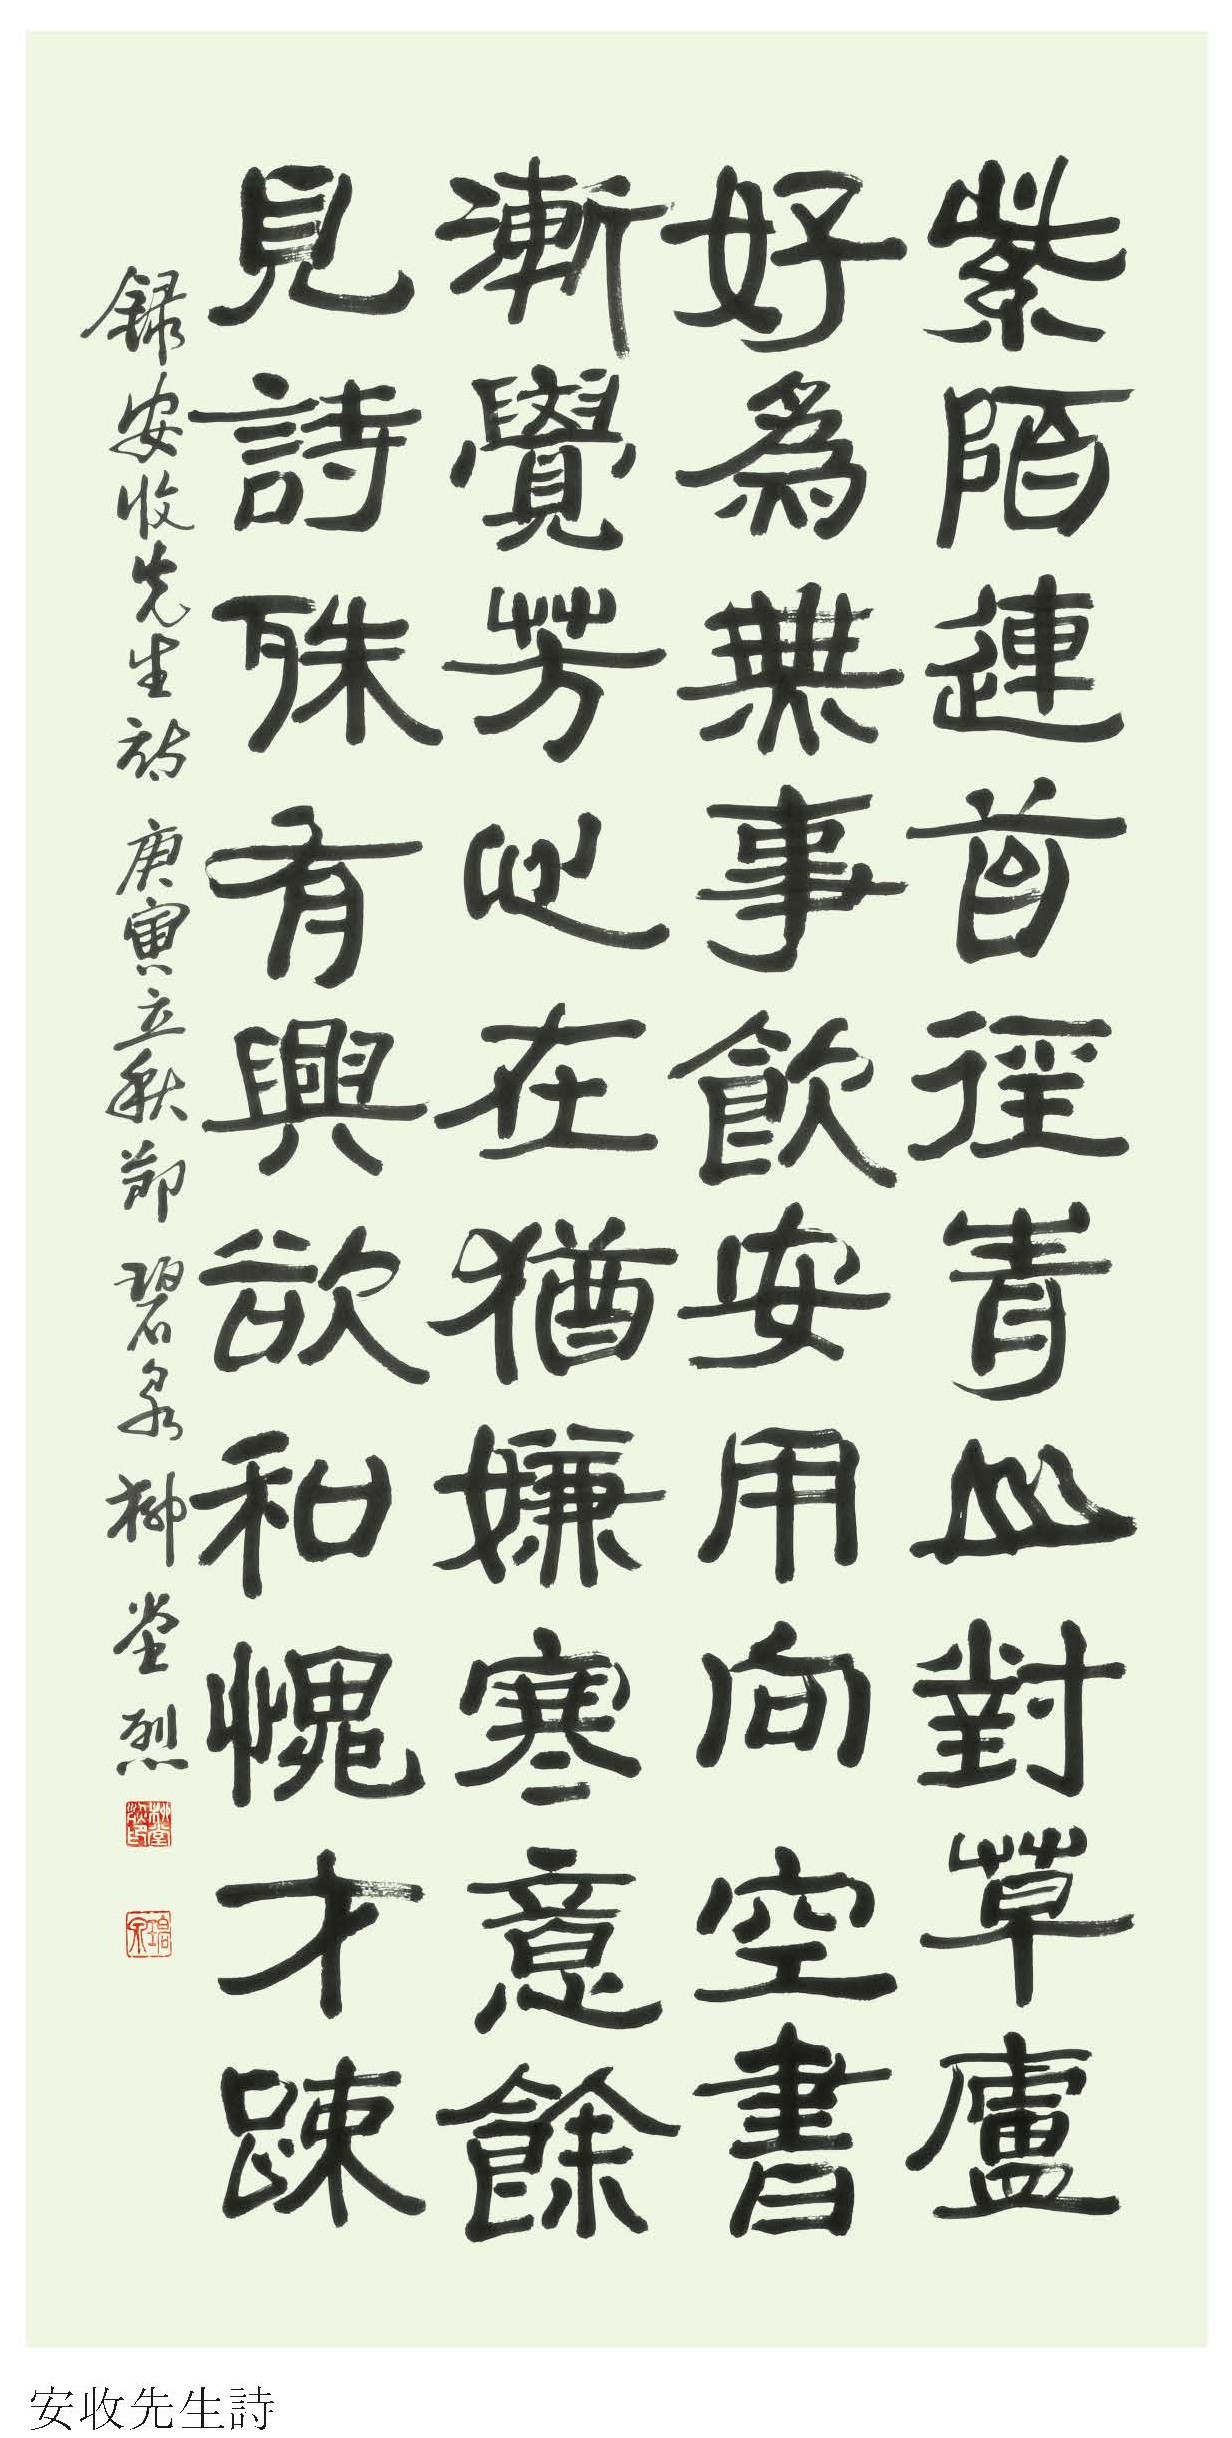 紫陌連苔徑青山對草廬
好為無事飲安用向空書
漸覺芳心在猶嫌寒意餘
見詩殊有興欲和愧才踈
錄安收先生詩 庚寅立秋節 碧泉 柳堂烈
安收先生詩